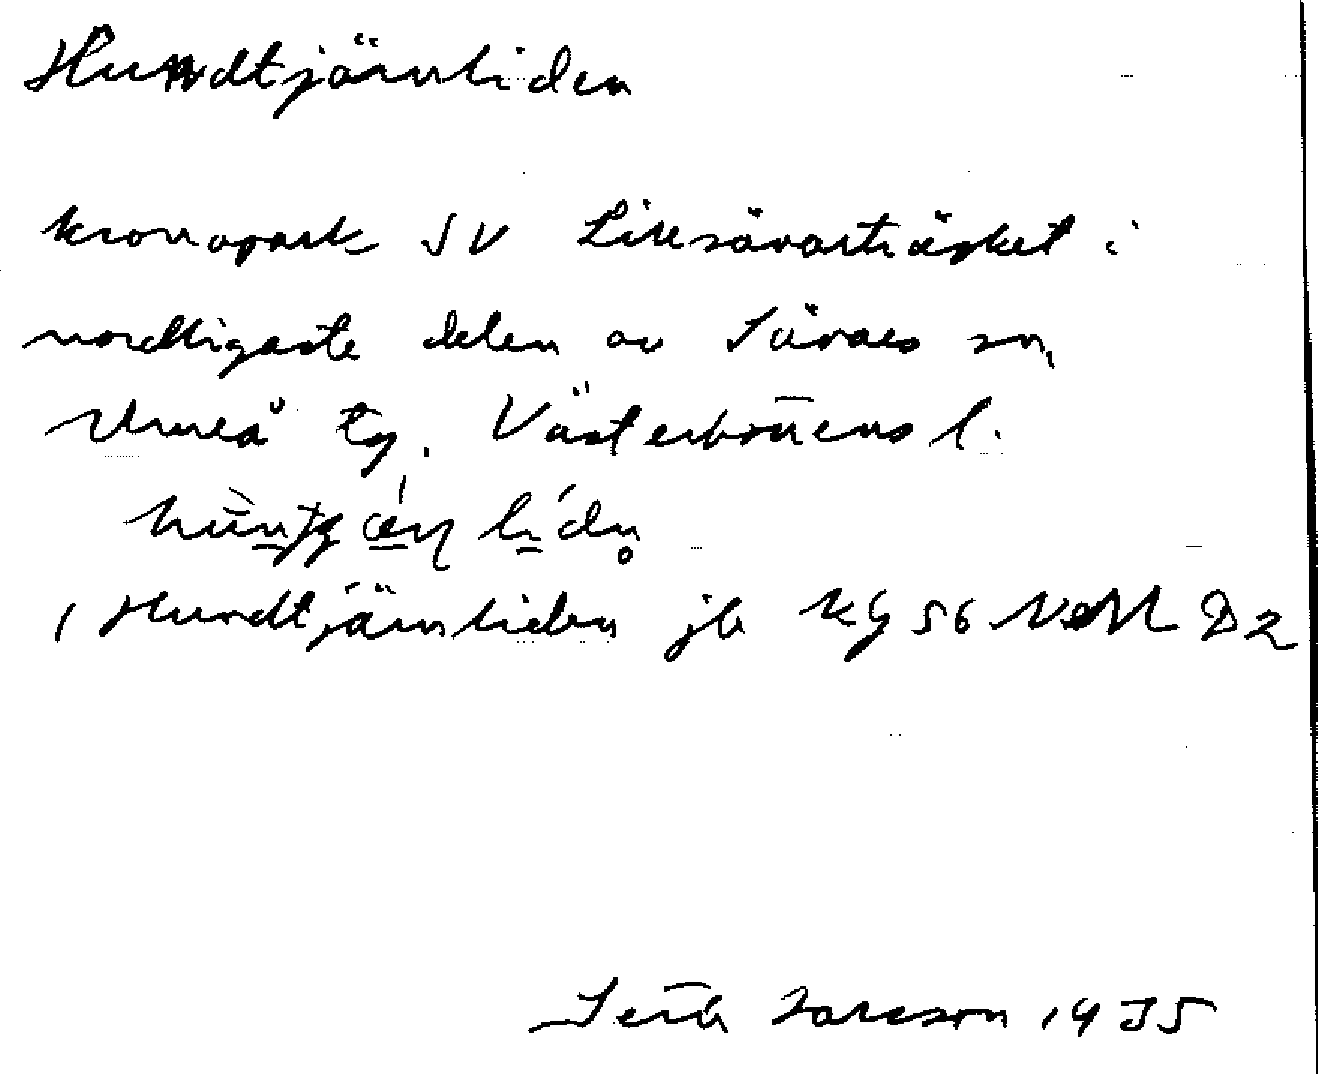 Hundtjärnliden
kronopark SV Lillsävarträsket i
nordligaste delen av Sävars sn,
Umeå tg. Västerbottens l.
Hundtjärnliden jb kg 56 NV D2
Larsson 1935